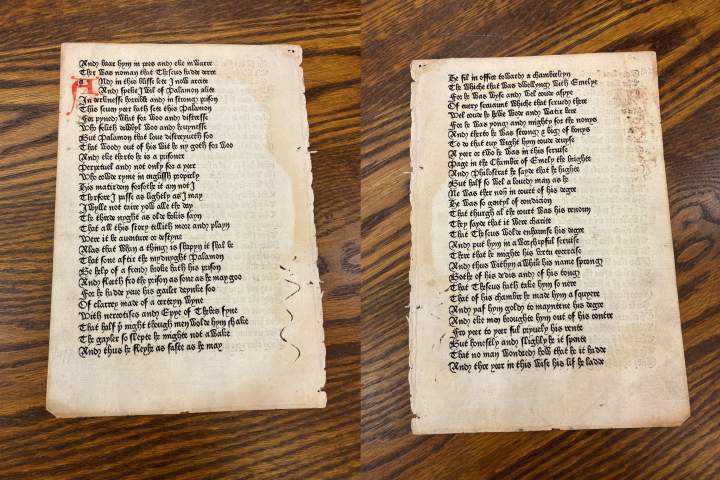 And baar hym in pees and eke in warre
Ther was noman that Theseus hadde derre
And in this blisse lete I now arcite
And speke I wil of Palamon alite
In derknesse horrible and in strong prison
This seuen yeer hath sete this Palamon
For pyned what for woo and distresse
Who felith dowbyl woo and heuynesse
But Palamon that loue distreyneth soo
That wood out of his wit he ny goth for woo
And eke therto he is a prisoner
Perpetuel and not only for a yeer
Who cowde ryme in englissh propirly
His matirdom forsothe it am not I
Therfore I passe as lightly as I may
I wylle not tarie you alle the day
The thirde nyght as olde bokis sayn
That all this story tellith more and playn
Were it be auenture or desteyne
Alas that whan a thing is shapyn it shal be
That sone aftir the mydnyght Palamon
Be help of a frend broke hath his prison
And fleeth fro the prison as sone as he may goo
For he hadde yaue his gailer drynke soo
Of clarrey made of a certeyn wyne
With necotises and Opye of Thebes fyne
That half þe night though men wolde hym shake
The gayler so slepte he mighte not awake
And thus he fleyth as faste as he may
He fil in office towardy a chambirleyn
The whiche that was dwellyng with Emelye
For he was wyse and wel coude aspye
Of euery seruaunt whiche that serued there
Wel coude he hewe wode and watir bere
For he was yong and mighty for the nonys
And therto he was strong & big of bonys
To do that ony wight hym coude deuyse
A yeer or two he was in this seruise
Page in the chambir of Emely the brighte
And Philostrat he sayde that he highte
But half so wel a louyd man as he
Ne was ther non in court of his degre
He was so gentyl of condicion
That thurgh al the court was his renoun
They sayde that it were charite
That Theseus wolde enhaunse his degre
And put hym in a worshipful seruise
There that he mighte his vertu exercise
And thus withyn a while his name sprong
Bothe of his dedis and of his tong
That Theseus hath take hym so nere
That of his chambir he made hym a squyere
And yaf hym gold to mayntene his degre
And eke men broughte hym out of his contre
Fro yeer to yeer ful pryuely his rente
But honestly and slighly he it spente
That no man wondred how that he it hadde
And thre yeer in this wise his lif he ladde